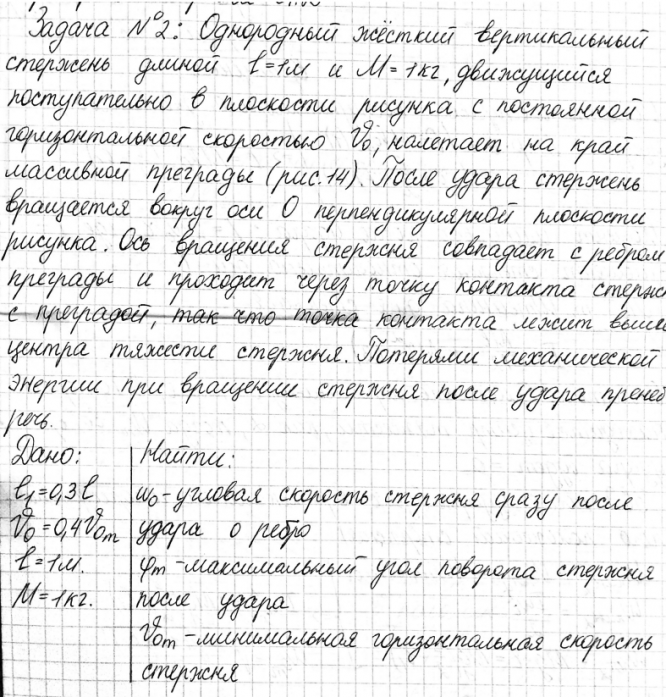 Задача №2: Однородный жёсткий вертикальный
стержень длиной l=1м и M=1кг, движущийся
поступательно в плоскости рисунка с постоянной
горизонтальной скоростью V₀, налетает на край
массивной преграды (рис.14). После удара стержень
вращается вокруг оси O перпендикулярной плоскости
рисунка. Ось вращения стержня совпадает с ребром
преграды и проходит через точку контакта стерж
с преградой, так что точка контакта лежит выше
центра тяжести стержня. Потерями механической
энергии при вращении стержня после удара пренеб
речь.
Дано: Найти:
l₁=0,3l ω₀-угловая скорость стержня сразу после
V₀=0,4V₀ₘ удара о ребро
l=1м. φₘ-максимальный угол поворота стержня
M=1кг. после удара
V₀ₘ-минимальная горизонтальная скорость
стержня